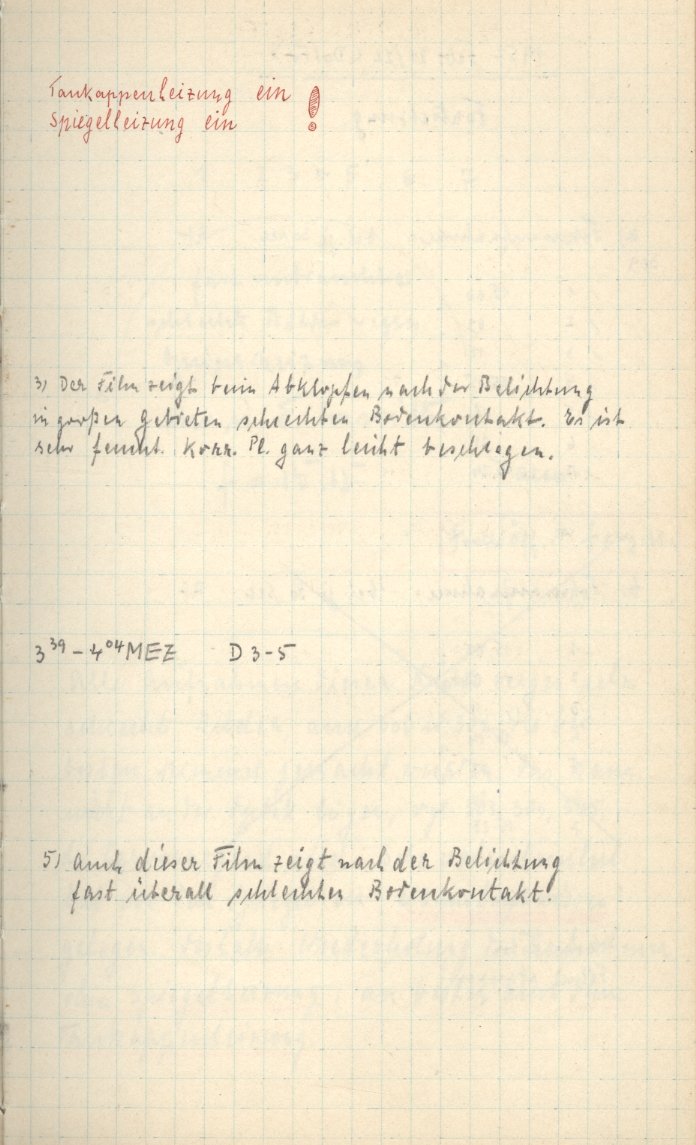 Taukappenheizung ein !
Spiegelheizung ein
3) Der Film zeigt beim Abklopfen nach der Belichtung
in großen Gebieten schlechten Bodenkontakt. Es ist
sehr feucht. Korr. Pl. ganz leicht beschlagen.
3³⁹ - 4⁰⁴ MEZ D 3-5
5) Auch dieser Film zeigt nach der Belichtung
fast überall schlechten Bodenkontakt!